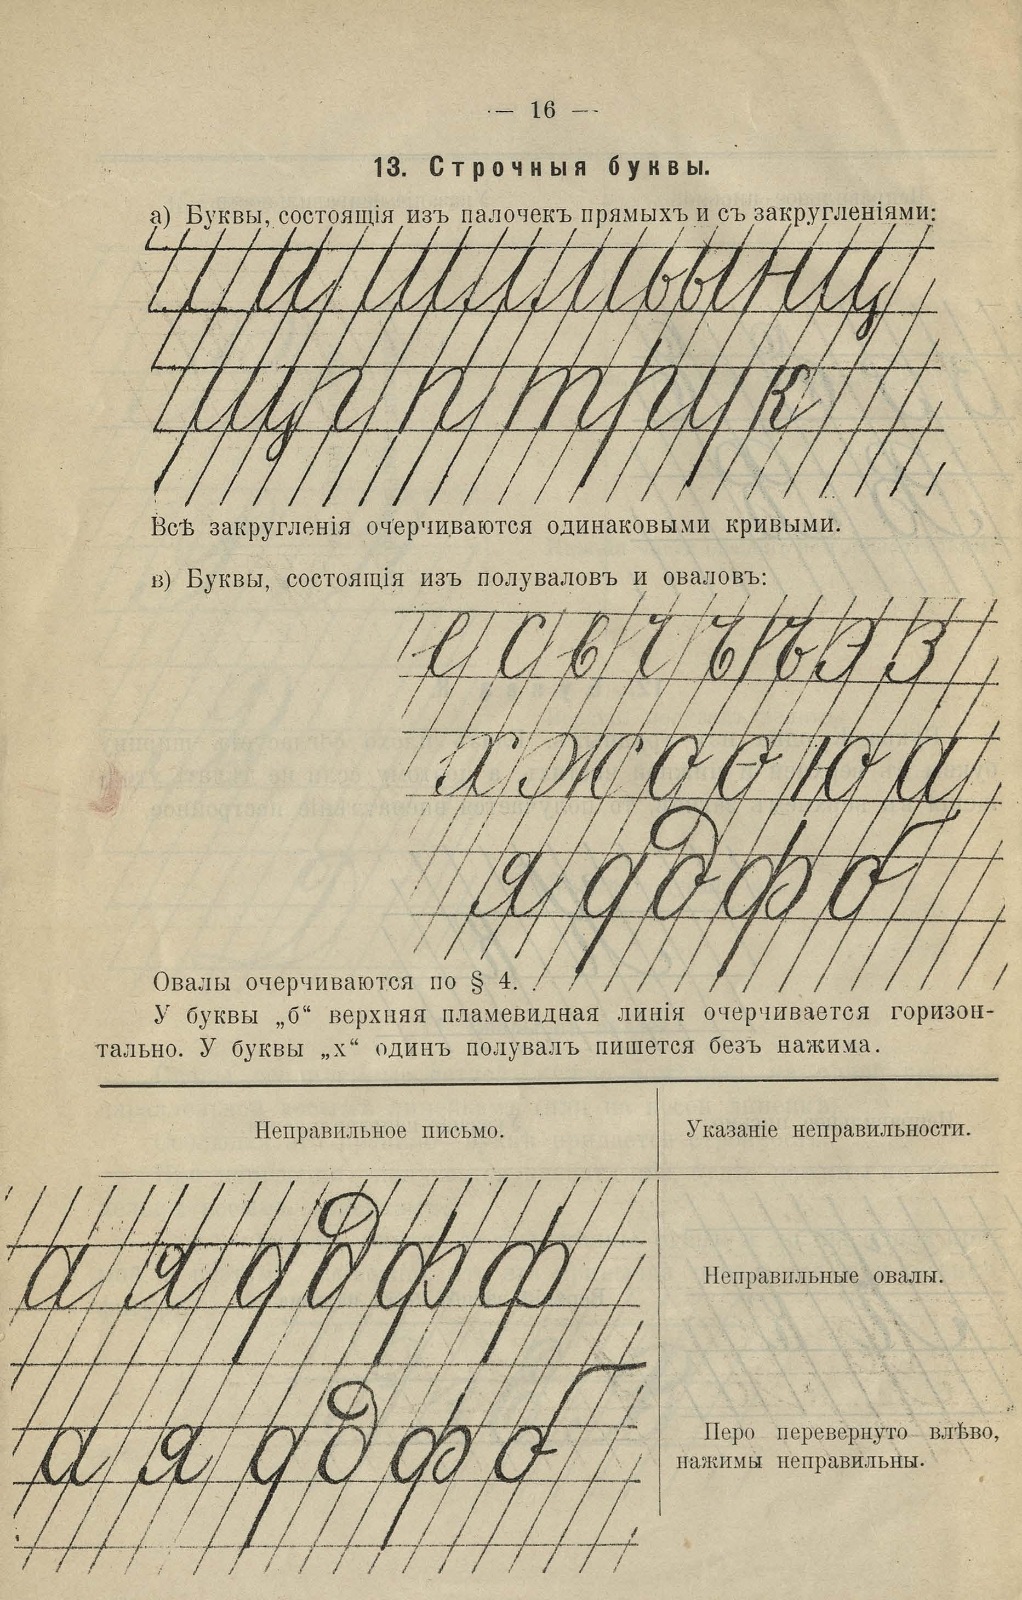 — 16 —
13. Строчныя буквы.
а) Буквы, состоящія изъ палочекъ прямыхъ и съ закругленіями:
Всѣ закругленія очерчиваются одинаковыми кривыми.
в) Буквы, состоящія изъ полуваловъ и оваловъ:
е с в ч ъ ѣ э з
х ж о о ю а
я д д ф б
Овалы очерчиваются по § 4.
У буквы „б“ верхняя пламевидная линія очерчивается горизон-
тально. У буквы „х“ одинъ полувалъ пишется безъ нажима.
Неправильное письмо.
Указаніе неправильности.
а я д д ф ф
Неправильные овалы.
а я д д ф б
Перо перевернуто влѣво,
нажимы неправильны.